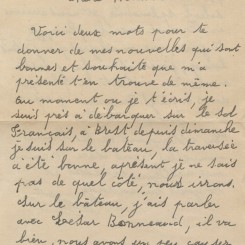 Voici deux mots pour te
donner de mes nouvelles qui sont
bonnes et souhaite que m'a
présente t'en trouve de même.
Au moment ou je t'écris, je
suis près a debarquer sur le sol
Français, a Brest depuis dimanche
je suis sur le bateau, la traversée
a été bonne, aprésent je ne sais
pas de quel côté, nous irons.
Sur le bâteau, j'ais parler
avec César Bonneaud, il va
bien, nous avons un peu causer